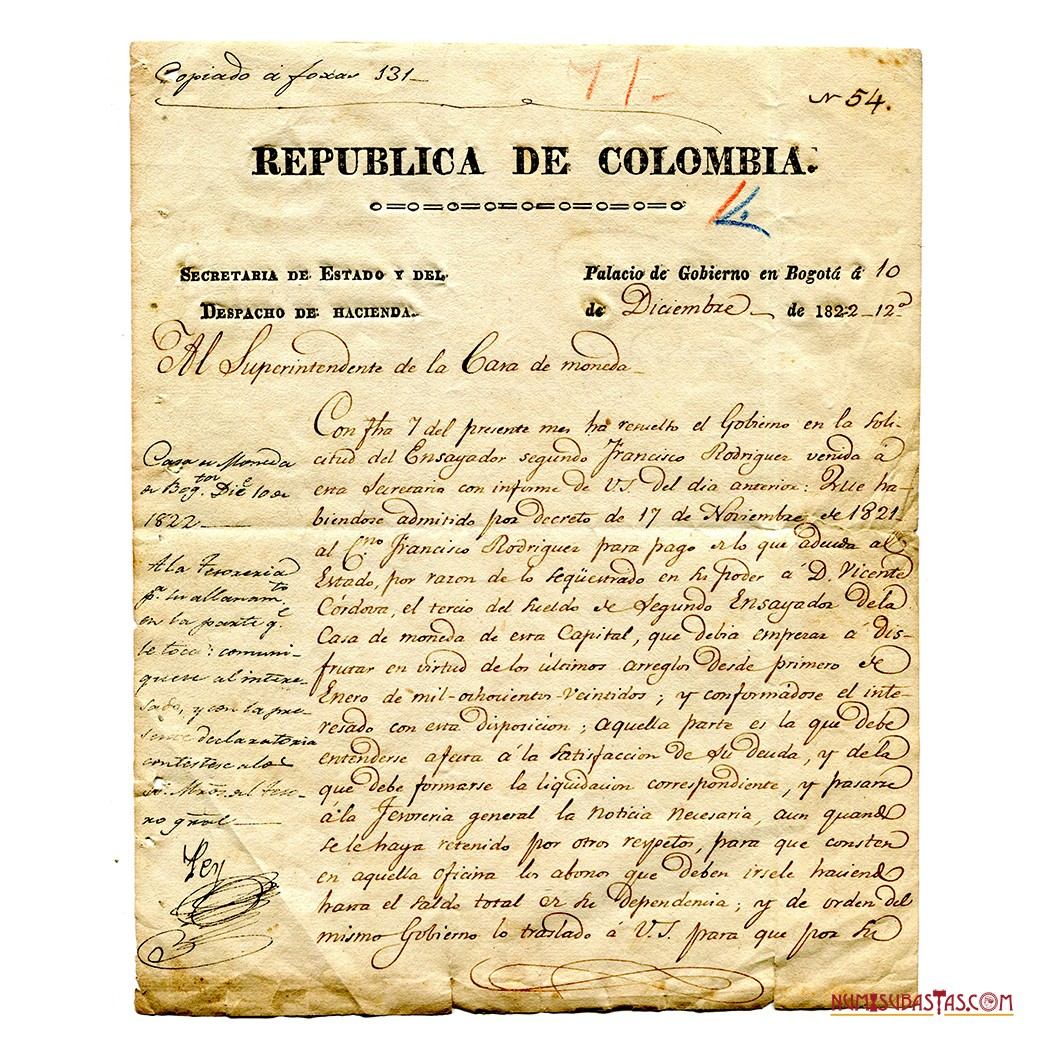 Copiado á foxas 131
71.
N 54.
REPUBLICA DE COLOMBIA.
SECRETARIA DE ESTADO Y DEL
DESPACHO DE HACIENDA.
Palacio de Gobierno en Bogotá á 10
de Diciembre de 1822-12º
Al Superintendente de la Casa de moneda
Con fha 7 del presente mes ha resuelto el Gobierno en la soli-
citud del Ensayador segundo Francisco Rodriguez venida á
esta Secretaria con informe de V.S. del dia anterior: Que ha-
biendose admitido por decreto de 17 de Noviembre de 1821
al C.no Francisco Rodriguez para pago de lo que adeuda al
Estado, por razon de lo seqüestrado en su poder á D. Vicente
Córdova, el tercio del sueldo de Segundo Ensayador de la
Casa de moneda de esta Capital, que debia empezar á dis-
frutar en virtud de los últimos arreglos desde primero de
Enero de mil-ochocientos-veintidos; y conformádose el inte-
resado con esta disposicion; aquella parte es la que debe
entenderse afecta á la satisfaccion de su deuda, y de la
que debe formarse la liquidacion correspondiente, y pasarse
á la Tesoreria general la Noticia Necesaria, aun quando
se le haya retenido por otros respetos, para que consten
en aquella oficina los abonos que deben irsele haciendo
hasta el saldo total de su dependencia; y de orden del
mismo Gobierno lo traslado á V.S. para que por su
Casa de Moneda
de Bog. Dic.e 10 de
1822
A la Tesoreria
p.a su allanam.to
en la parte q.e
le toca: comuni-
quese al intere-
sado, y con la pre-
sente declaratoria
contestese a los
S. Mros. del teso-
ro gral
NUMISUBASTAS.COM